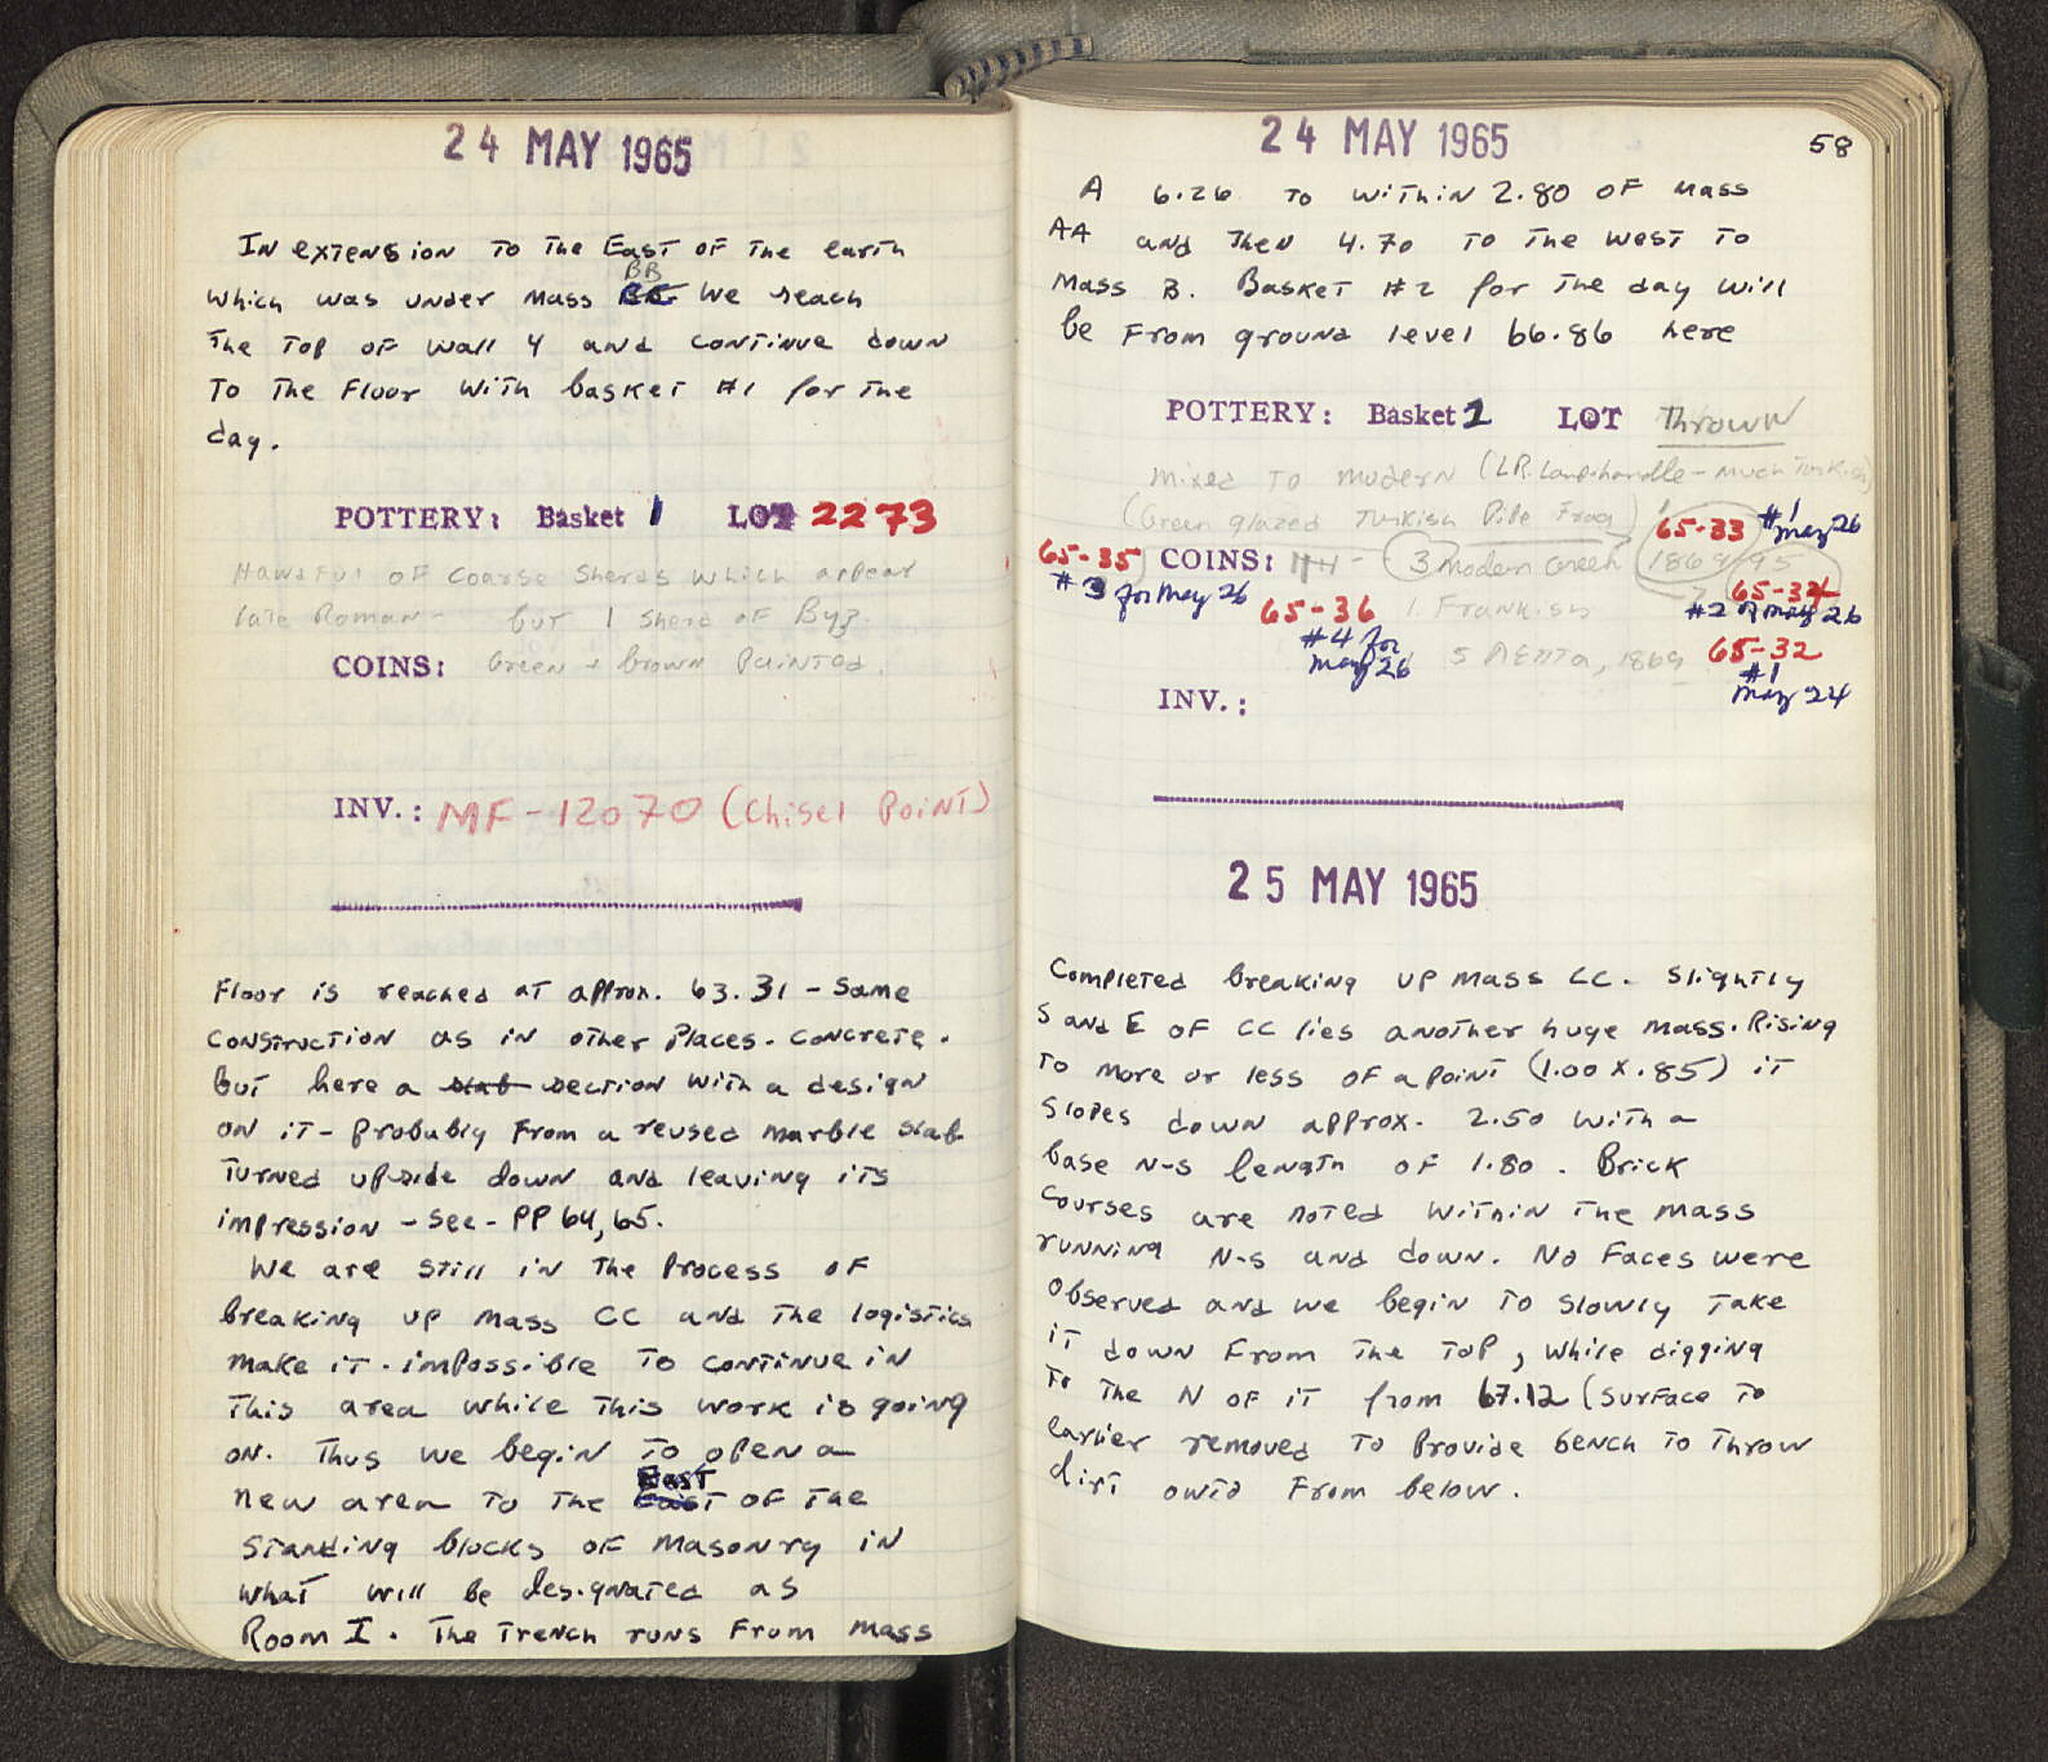 24 MAY 1965
In extension to the East of the earth
BB
which was under mass we reach
the top of wall 4 and continue down
to the floor with basket #1 for the
day.
POTTERY: Basket 1 LOT 2273
Handful of coarse sherds which appear
late Roman - but 1 sherd of Byz.
Green + brown painted.
COINS:
INV.: MF-12070 (Chisel Point)
Floor is reached at approx. 63.31 - same
construction as in other places. concrete.
but here a slab section with a design
on it - probably from a reused marble slab
turned upside down and leaving its
impression - see - PP 64, 65.
We are still in the process of
breaking up mass CC and the logistics
make it impossible to continue in
this area while this work is going
on. Thus we begin to open a
new area to the East of the
standing blocks of masonry in
what will be designated as
Room I. The trench runs from mass
24 MAY 1965
58
A 6.26 to within 2.80 of mass
AA and then 4.70 to the west to
mass B. Basket #2 for the day will
be from ground level 66.86 here
POTTERY: Basket 2 LOT Thrown
mixed to modern (LR. Lamp-handle - much Turkish)
(Green glazed Turkish Pipe Frag)
65-33 #1 may 26
65-35 COINS: 3 modern Greek 1869, 95
#3 for May 26
65-34
#2 of may 26
65-36 1. Frankish
#4 for may 26
5 ΛΕΠΤΑ, 1869 65-32
#1 may 24
INV.:
25 MAY 1965
Completed breaking up mass CC. Slightly
S and E of CC lies another huge mass. Rising
to more or less of a point (1.00 x .85) it
slopes down approx. 2.50 with a
base N-S length of 1.80. Brick
courses are noted within the mass
running N-S and down. No faces were
observed and we begin to slowly take
it down from the top, while digging
to the N of it from 67.12 (surface to
earlier removed to provide bench to throw
dirt onto from below.